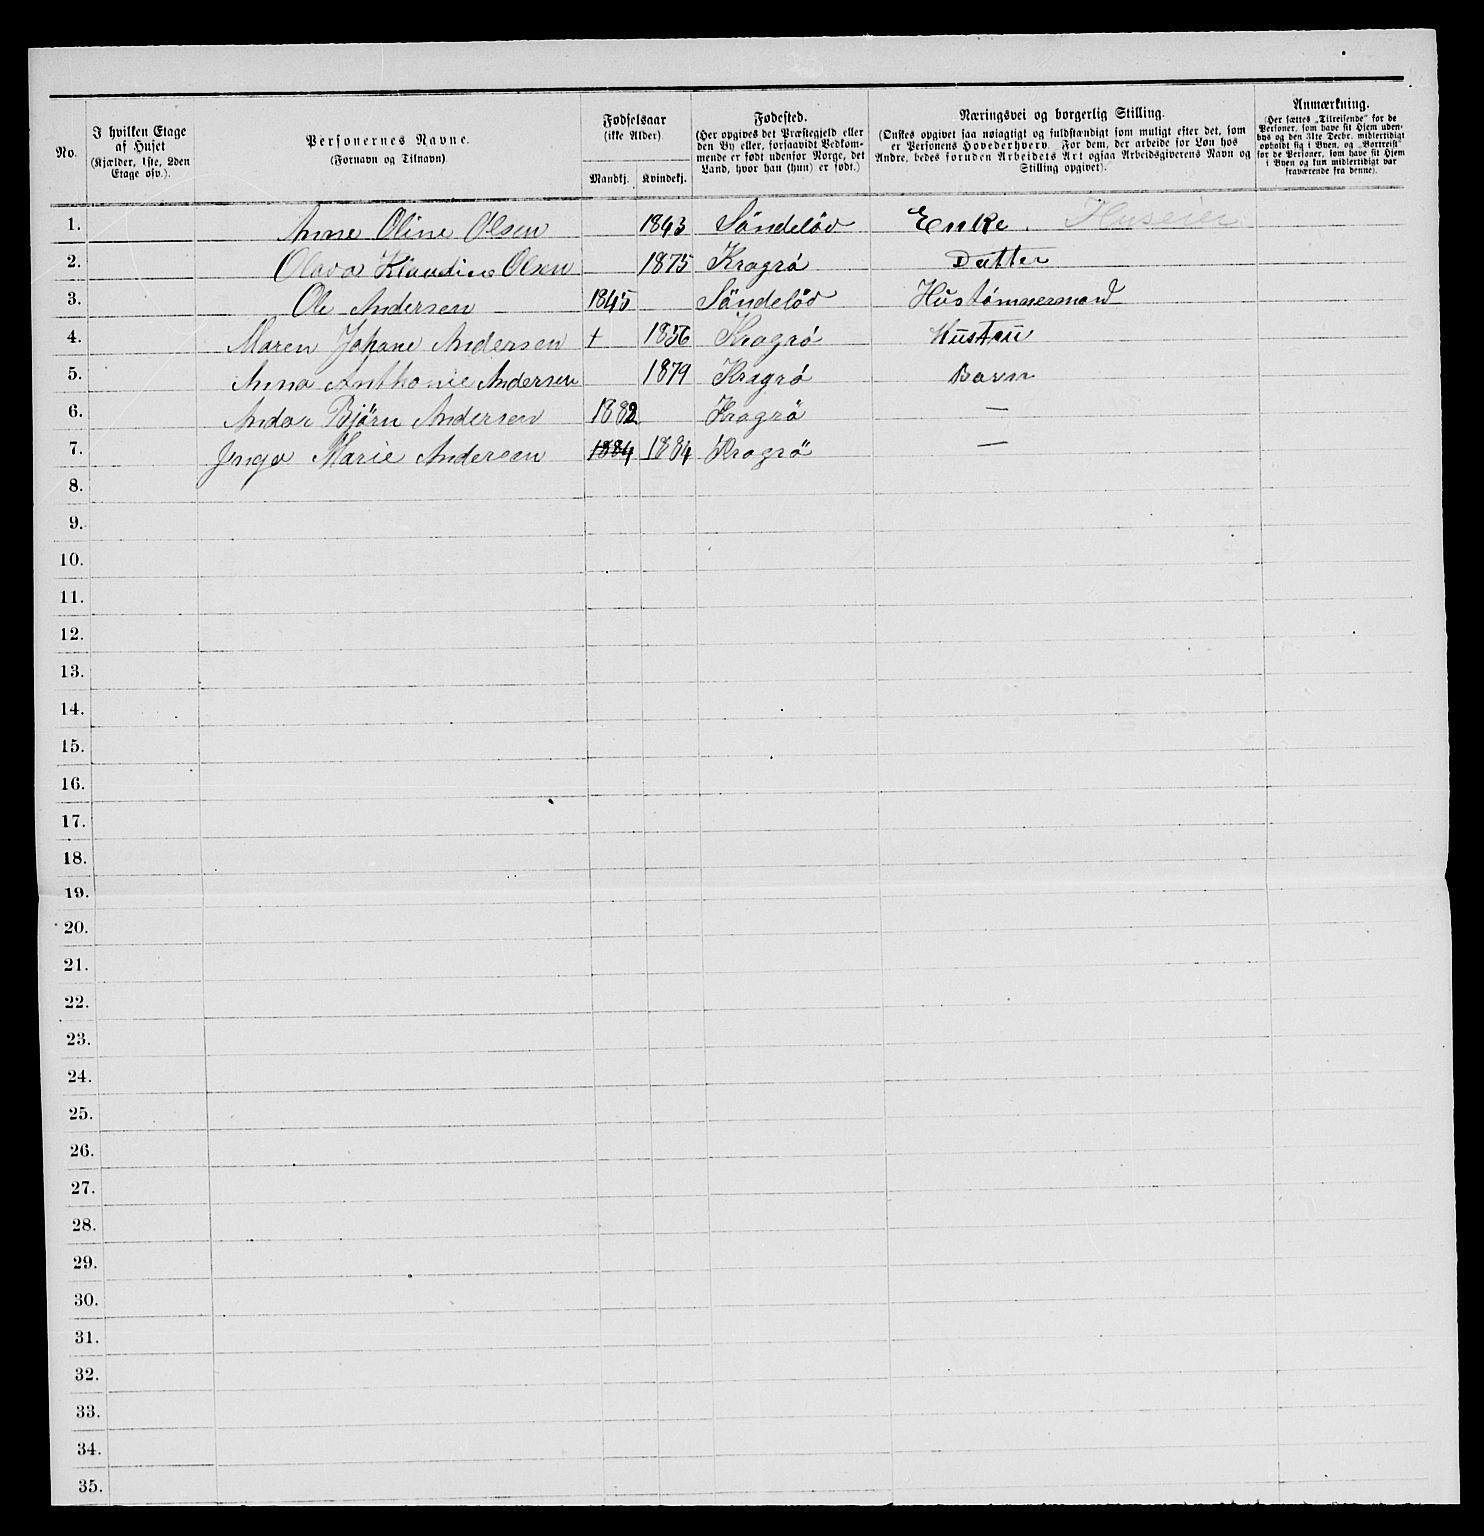 No. | I hvilken Etage af Huset (Kjælder, 1ste, 2den Etage osv.). | Personernes Navne. (Fornavn og Tilnavn). | Fødselsaar (ikke Alder). Mandkj. | Kvindekj. | Fødested. (Her opgives det Præstegjeld eller den By eller, forsaavidt Vedkommende er født udenfor Norge, det Land, hvor han (hun) er født.) | Næringsvei og borgerlig Stilling. (Ønskes opgivet saa nøiagtigt og fuldstændigt som muligt efter det, som er Personens Hovederhverv. For dem, der arbeide for Løn hos Andre, bedes foruden Arbeidets Art ogsaa Arbeidsgiverens Navn og Stilling opgivet). | Anmærkning. (Her sættes „Tilreisende" for de Personer, som have sit Hjem udenbys og den 31te Decbr. midlertidigt opholdt sig i Byen, og „Bortreist" for de Personer, som have sit Hjem i Byen og kun midlertidigt var fraværende fra denne).
1. Anne Oline Olsen 1843 Söndelöv Enke. Huseier
2. Olava Klaudine Olsen 1875 Kragrö Datter
3. Ole Andersen 1845 Söndelöv Hustömmermand
4. Maren Johane Andersen + 1856 Kragrö Hustru
5. Anna Anthonie Andersen 1879 Kragrö Barn
6. Andor Björn Andersen 1882 Kragrö —
7. Jnga Marie Andersen 1884 1884 Kragrö —
8.
9.
10.
11.
12.
13.
14.
15.
16.
17.
18.
19.
20.
21.
22.
23.
24.
25.
26.
27.
28.
29.
30.
31.
32.
33.
34.
35.